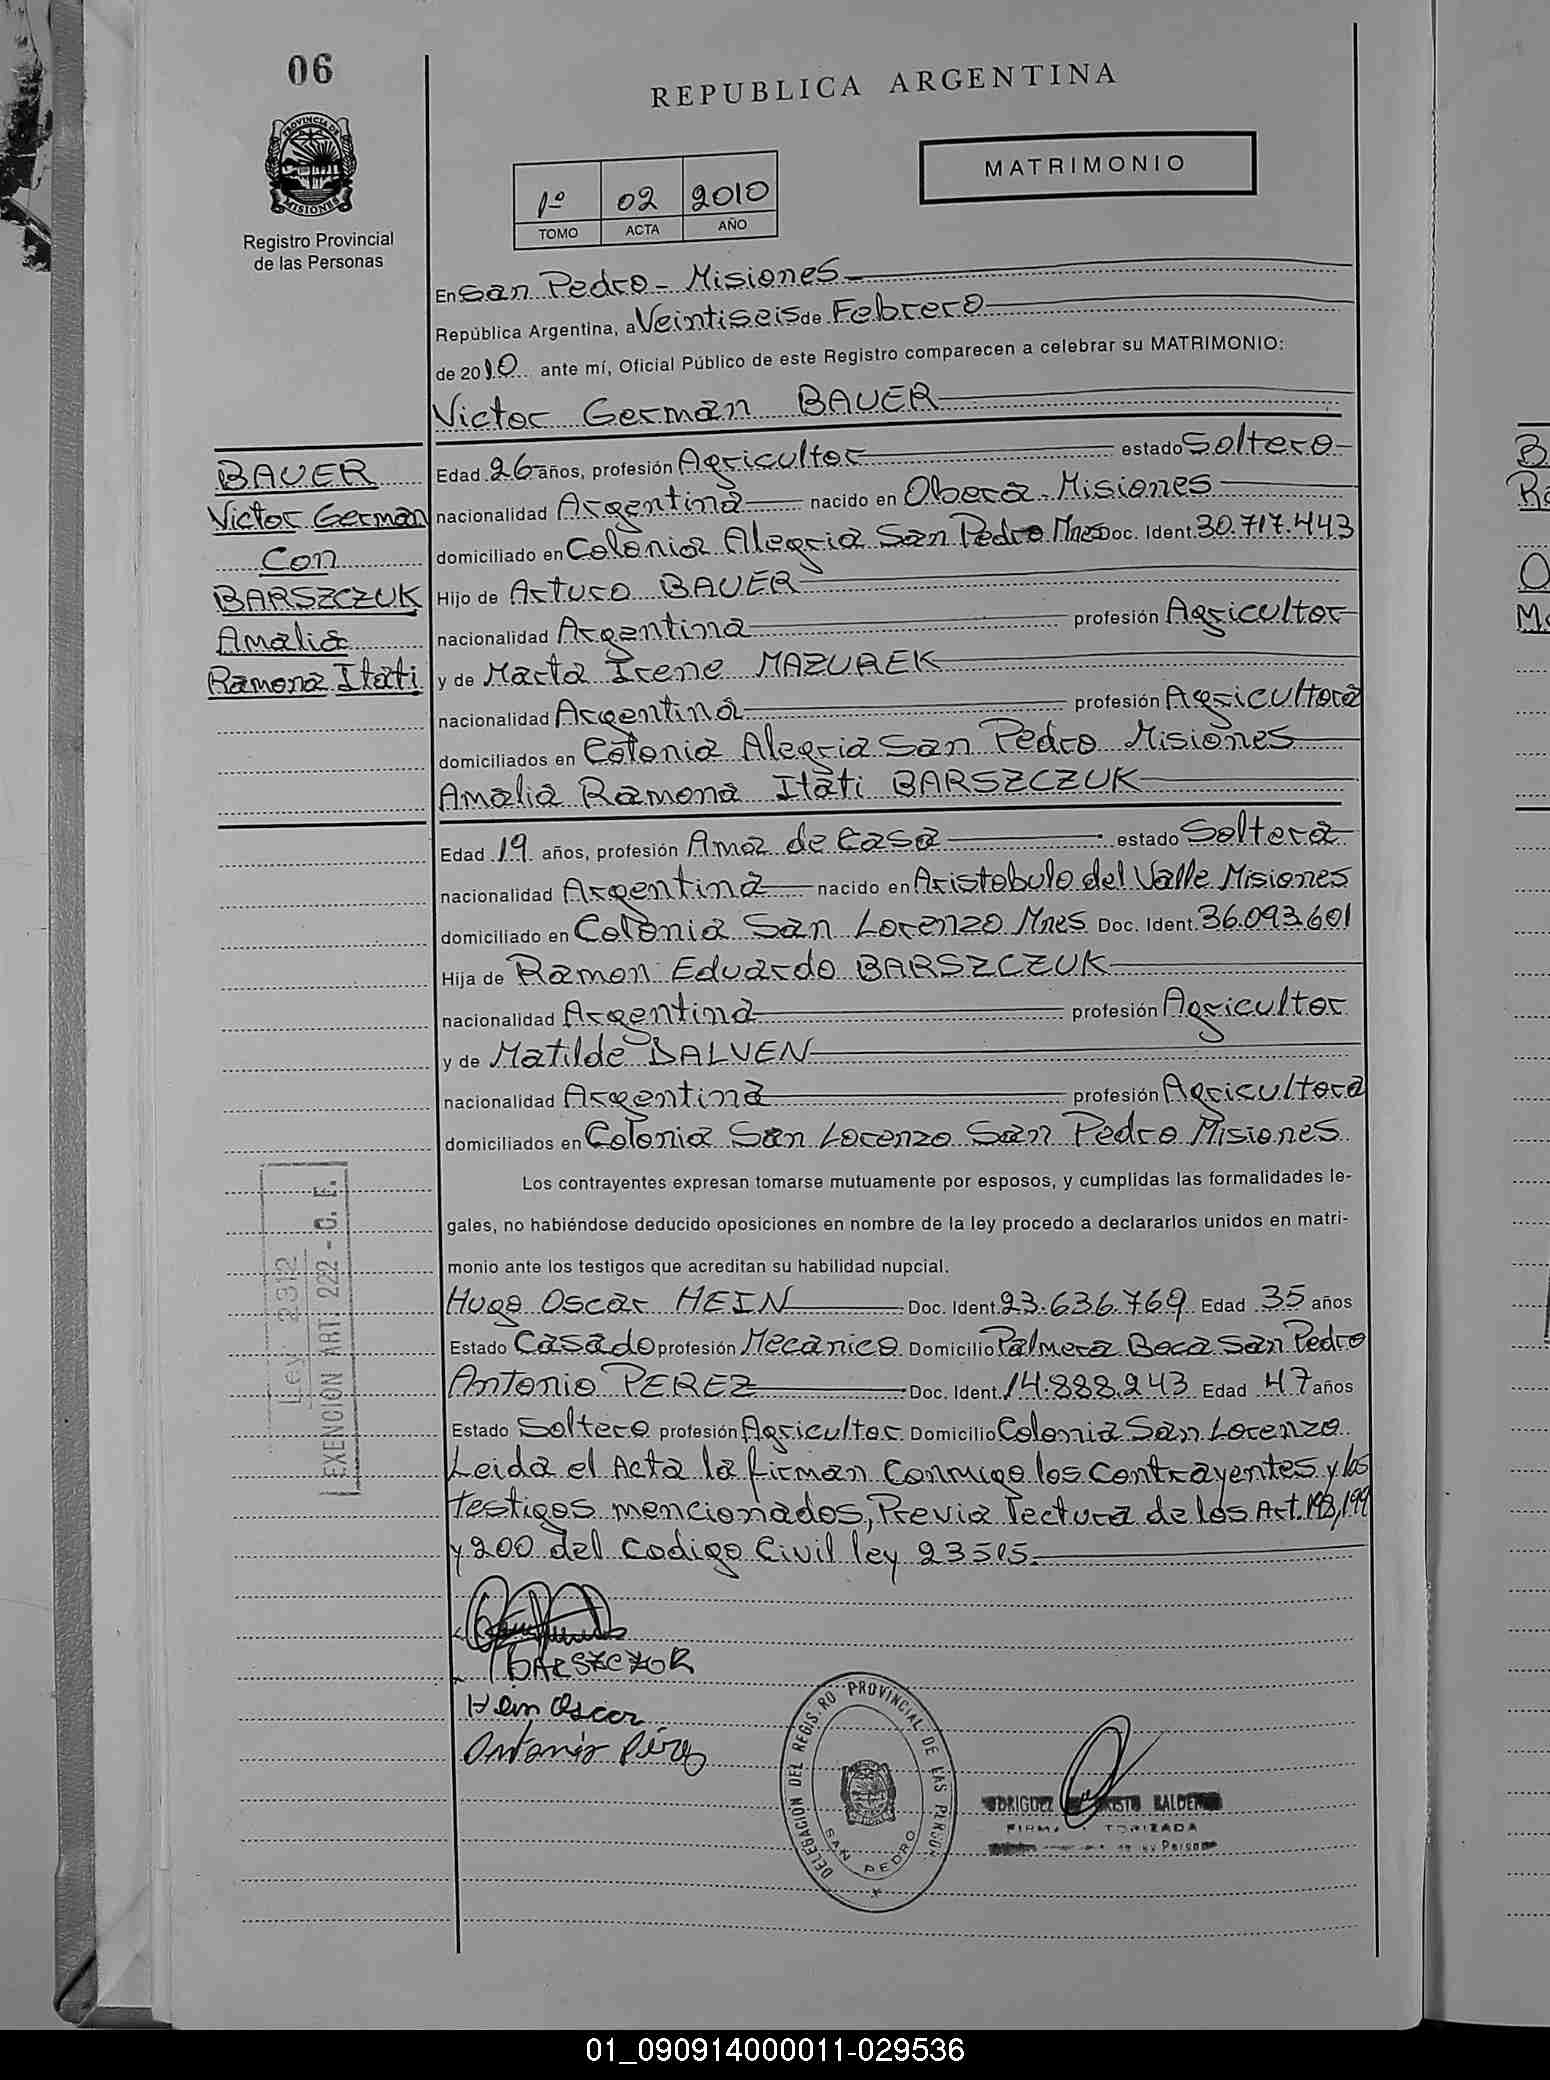 06
REPUBLICA ARGENTINA
PROVINCIA DE
MISIONES
Registro Provincial
de las Personas
MATRIMONIO
1º 02 2010
TOMO ACTA AÑO
En San Pedro - Misiones
República Argentina, a Veintiseis de Febrero
de 2010 ante mí, Oficial Público de este Registro comparecen a celebrar su MATRIMONIO:
Victor German BAUER
BAUER
Victor German
Con
BARSZCZUK
Amalia
Ramona Itati
Edad 26 años, profesión Agricultor estado Soltero
nacionalidad Argentina nacido en Obera - Misiones
domiciliado en Colonia Alegria San Pedro Mnes Doc. Ident. 30.717.443
Hijo de Arturo BAUER
nacionalidad Argentina profesión Agricultor
y de Marta Irene MAZUREK
nacionalidad Argentina profesión Agricultora
domiciliados en Colonia Alegria San Pedro Misiones
Amalia Ramona Itati BARSZCZUK
Edad 19 años, profesión Ama de Casa estado Soltera
nacionalidad Argentina nacido en Aristobulo del Valle Misiones
domiciliado en Colonia San Lorenzo Mnes Doc. Ident. 36.093.601
Hija de Ramon Eduardo BARSZCZUK
nacionalidad Argentina profesión Agricultor
y de Matilde DALVEN
nacionalidad Argentina profesión Agricultora
domiciliados en Colonia San Lorenzo San Pedro Misiones
Los contrayentes expresan tomarse mutuamente por esposos, y cumplidas las formalidades le-
gales, no habiéndose deducido oposiciones en nombre de la ley procedo a declararlos unidos en matri-
monio ante los testigos que acreditan su habilidad nupcial.
Ley 2312
EXENCION ART. 222 - C. F.
Hugo Oscar HEIN Doc. Ident. 23.636.769 Edad 35 años
Estado Casado profesión Mecanico Domicilio Palmera Boca San Pedro
Antonio PEREZ Doc. Ident. 14.888.243 Edad 47 años
Estado Soltero profesión Agricultor Domicilio Colonia San Lorenzo
Leida el Acta la firman conmigo los contrayentes y los
testigos mencionados, Previa lectura de los Art. 198, 199
y 200 del Codigo Civil ley 23515.
Hein Oscar
Antonio Pérez
DELEGACION DEL REGISTRO PROVINCIAL DE LAS PERSON
SAN PEDRO
01_090914000011-029536